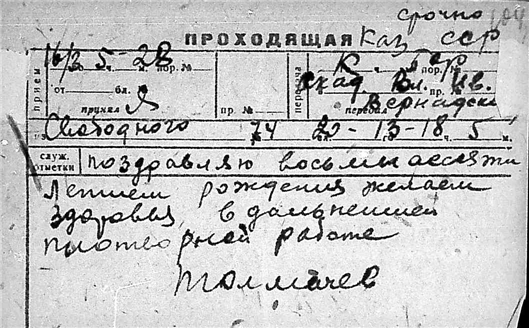 срочно
ПРОХОДЯЩАЯ Каз ССР
16/3 5-28
прием ч. м. пор. № передача пор. №
от бл. № Акад Вл. Ив.
принял Я пр. № передал Вернадски
Свободного 74 20-13-18 5
служ. отметки поздравляю восьмидесяти
Летием рождения желаем
здоровья в дальнейшей
плотворной работе
Толмачев